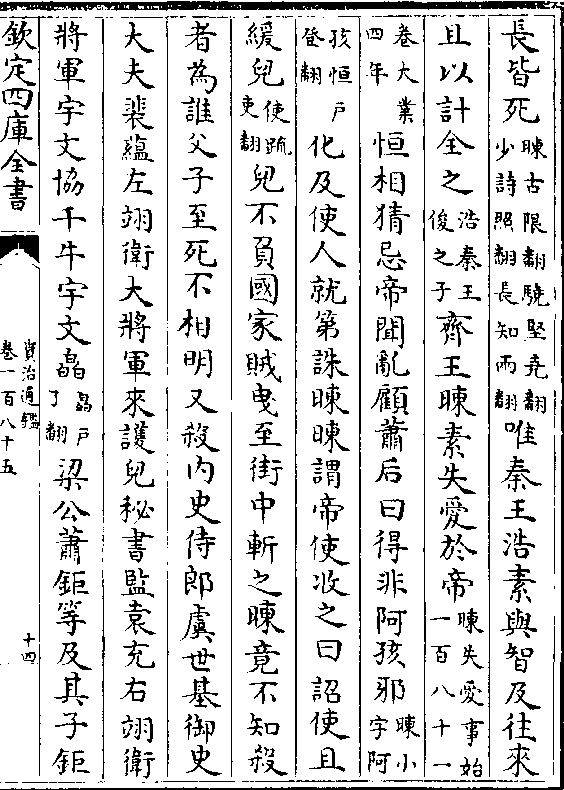 長皆死暕古限翻驍堅堯翻少詩照翻長知兩翻唯秦王浩素與智及往來
且以計全之浩秦王俊之子齊王暕素失愛於帝暕失愛事始一百八十一
卷大業四年恒相猜忌帝聞亂顧蕭后曰得非阿孩邪暕小字阿
孩恒戶登翻化及使人就第誅暕暕謂帝使收之曰詔使且
緩兒使疏吏翻兒不負國家賊曳至街中斬之暕竟不知殺
者為誰父子至死不相明又殺內史侍郎虞世基御史
大夫裴蘊左翊衛大將軍來護兒秘書監袁充右翊衛
將軍宇文協千牛宇文皛皛戶了翻梁公蕭鉅等及其子鉅
欽定四庫全書
資治通鑑
卷一百八十五
十四